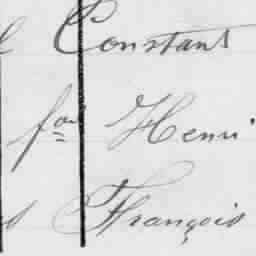 Constant
fois Henri
François